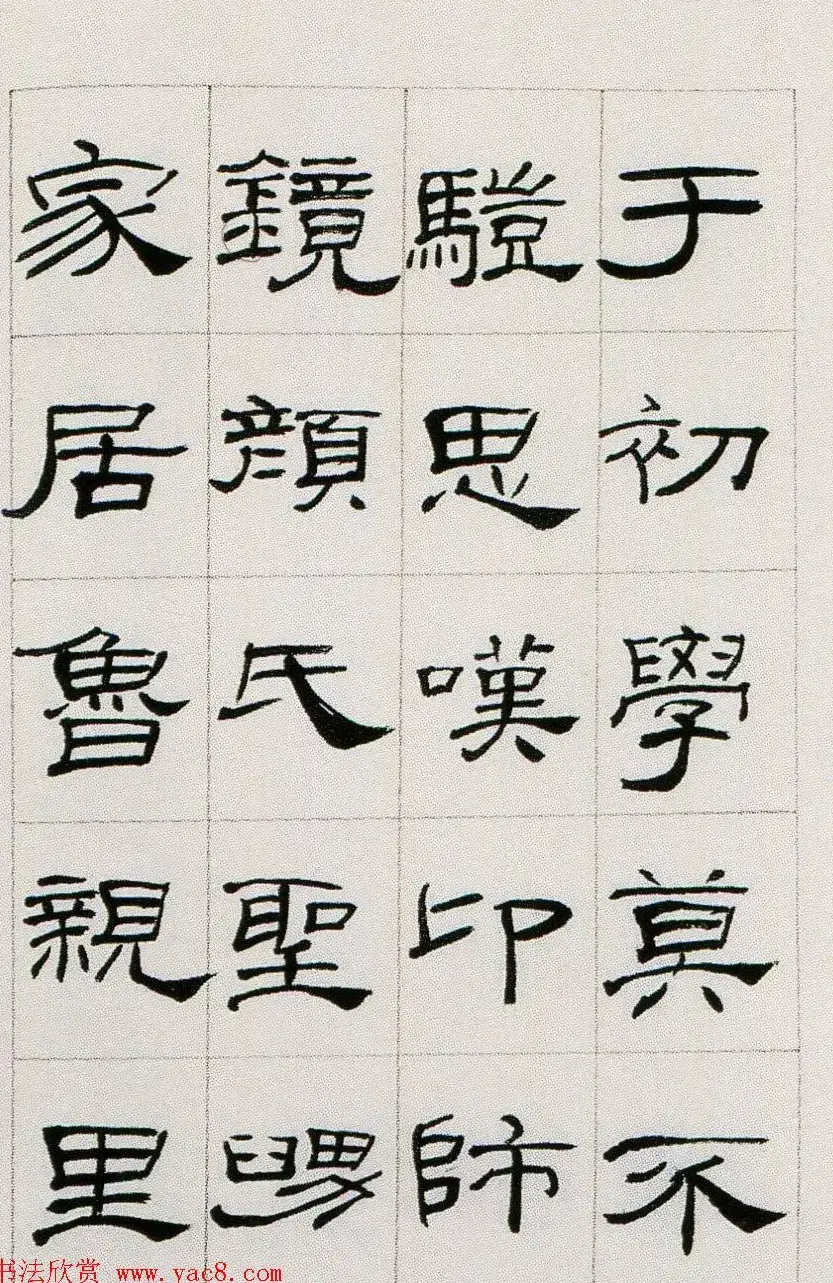 于初學莫不
驥思嘆卬師
鏡顏氏聖舅
家居魯親里
书法欣赏 www.yac8.com